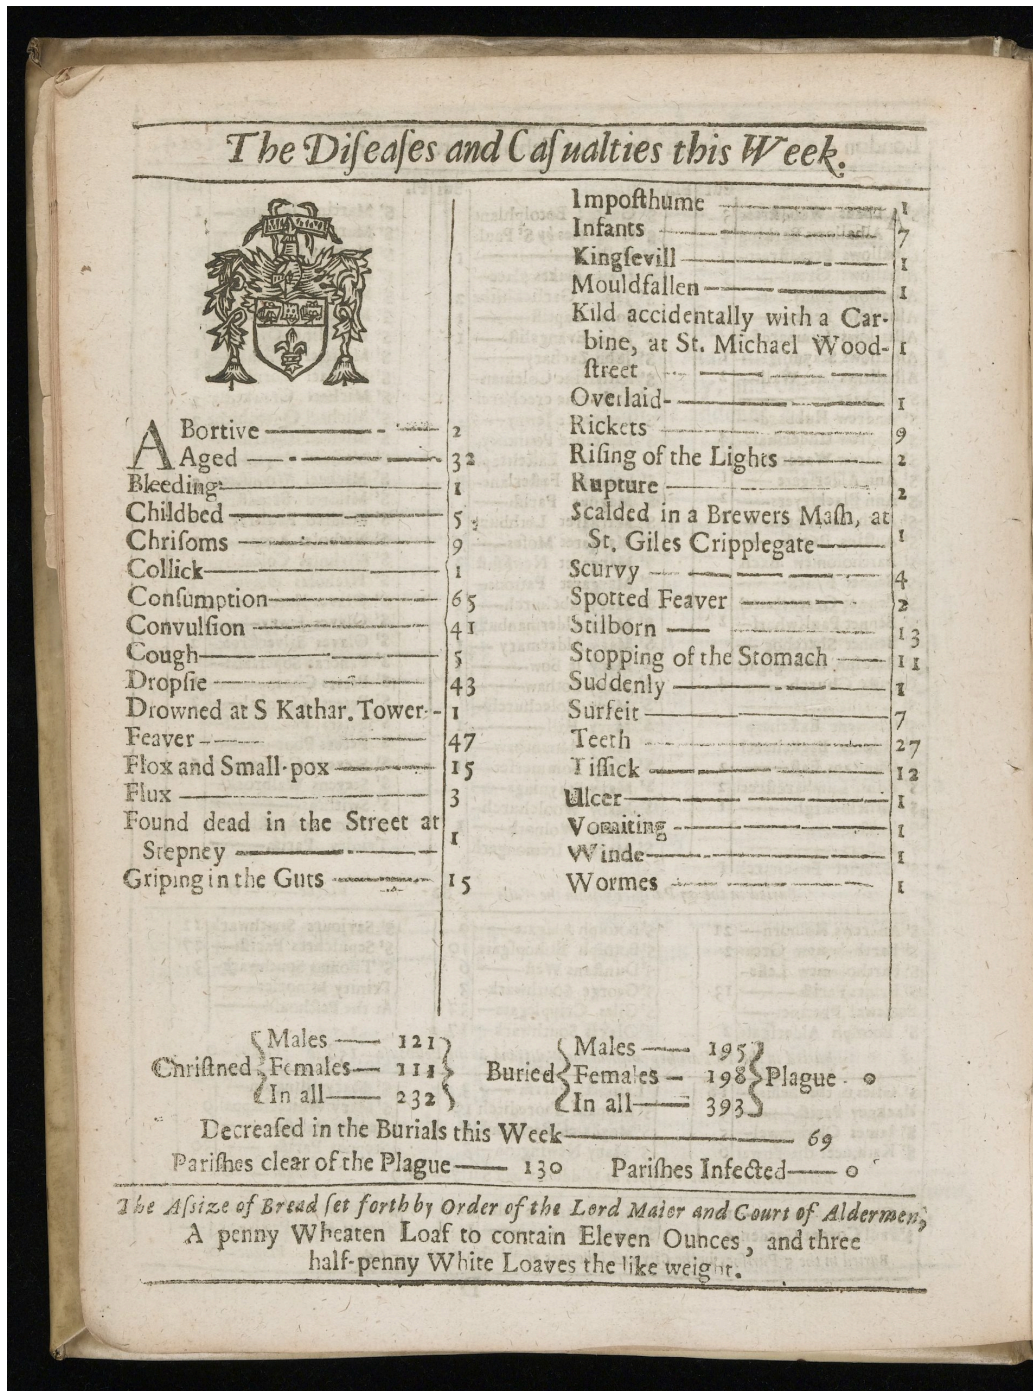 The Diſeaſes and Caſualties this Week.
ABortive 2
Aged 32
Bleeding 1
Childbed 5
Chriſoms 9
Collick 1
Conſumption 65
Convulſion 41
Cough 5
Dropſie 43
Drowned at S Kathar. Tower 1
Feaver 47
Flox and Small-pox 15
Flux 3
Found dead in the Street at
Stepney 1
Griping in the Guts 15
Impoſthume 1
Infants 7
Kingſevill 1
Mouldfallen 1
Kild accidentally with a Car-
bine, at St. Michael Wood- 1
ſtreet
Overlaid 1
Rickets 9
Riſing of the Lights 2
Rupture 2
Scalded in a Brewers Maſh, at
St. Giles Cripplegate 1
Scurvy 4
Spotted Feaver 2
Stilborn 13
Stopping of the Stomach 11
Suddenly 1
Surfeit 7
Teeth 27
Tiſſick 12
Ulcer 1
Vomiting 1
Winde 1
Wormes 1
Males 121
Chriſtned Females 111
In all 232
Males 195
Buried Females 198 Plague 0
In all 393
Decreaſed in the Burials this Week 69
Pariſhes clear of the Plague 130 Pariſhes Infected 0
The Aſsize of Bread ſet forth by Order of the Lord Maier and Court of Aldermen,
A penny Wheaten Loaf to contain Eleven Ounces, and three
half-penny White Loaves the like weight.